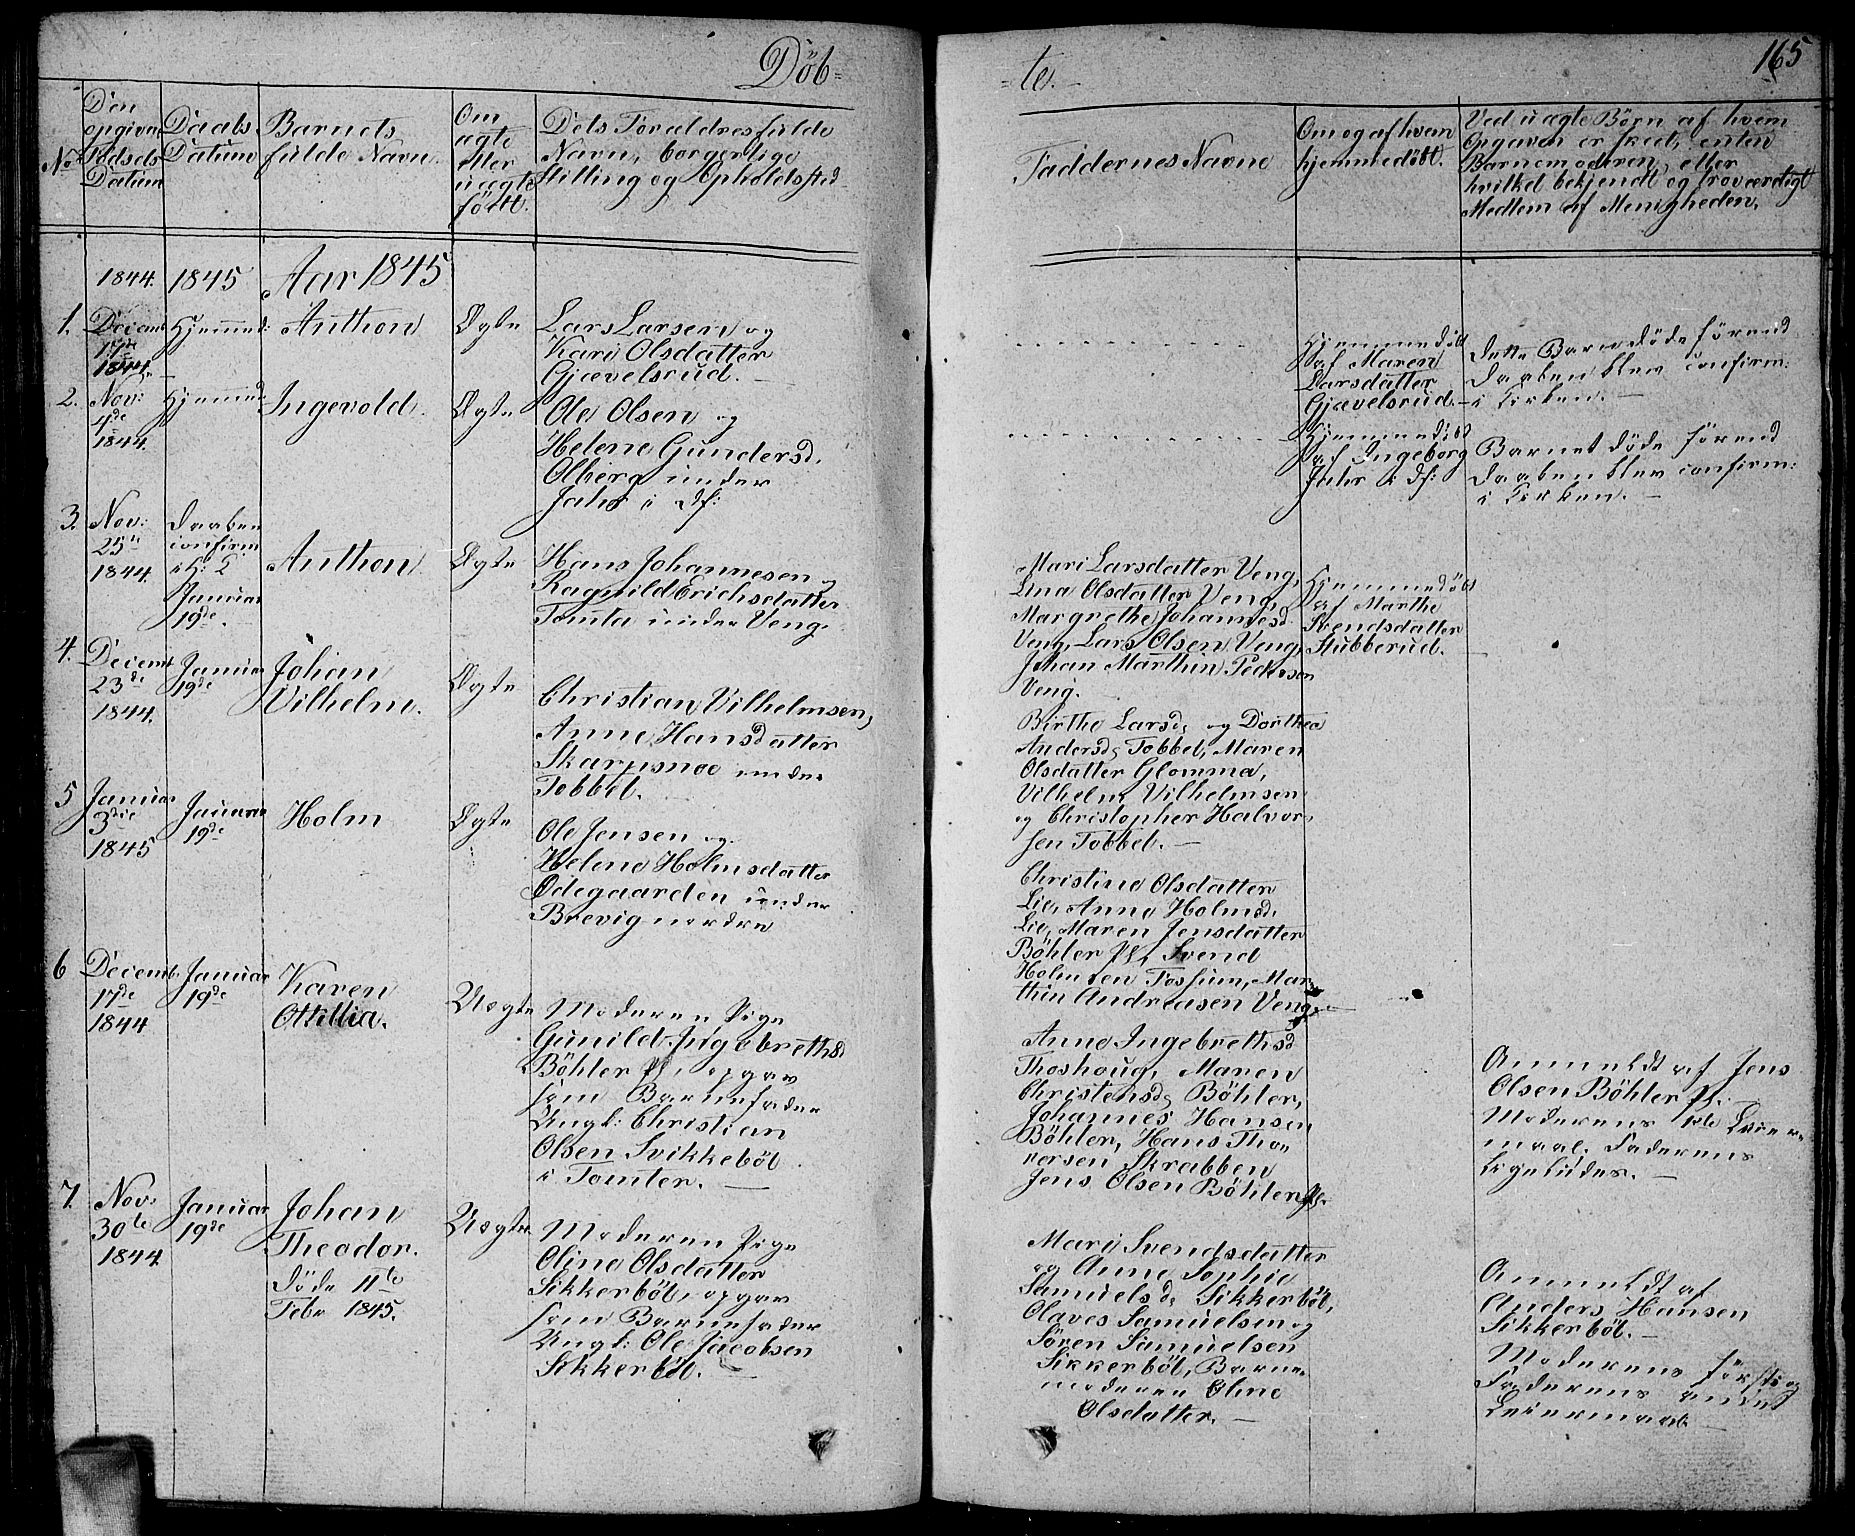 Döb=
=te.
165
No
Den opgivne Födsels Datum
Daabs Datum
Barnets fulde Navn.
Om ægte eller uægte födt.
Dets Forældres fulde Navn, borgerlige Stilling og Opholdssted
Faddernes Navne
Om og af hvem hjemmedöbt.
Ved uægte Börn af hvem Opgaven er skeet, enten Barnemoderen, eller hvilket bekjendt og troværdigt Medlem af Menigheden.
1844.
1845
Aar 1845
1.
Decemb
17de
1844.
Hjemmed:
Anthon
Ægte
Lars Larsen og
Kari Olsdatter
Gjævelsrud.
Hjemmedöbt
af Maren
Larsdatter
Gjævelsrud.
Dette Barn döde förend
Daaben blev confirm:
i Kirken.
2.
Nov:
4de
1844.
Hjemmed
Ingevold.
Ægte
Ole Olsen og
Helene Gundersd.
Olberg under
Jahr i Df:
Hjemmedöbt
af Ingeborg
Jahr i Df:
Barnet döde förend
Daaben blev confirm:
i Kirken.
3.
Nov:
25de
1844.
Daaben
confirm
i K:
Januar
19de.
Anthon
Ægte
Hans Johannesen og
Ragnild Erichsdatter
Tomta under Veng.
Mari Larsdatter Veng,
Lina Olsdatter Veng,
Margrethe Johannesd
Veng, Lars Olsen Veng,
Johan Marthin Pedersen
Veng.
Hjemmedöbt
af Marthe
Svendsdatter
Stubberud.
4.
Decemb
23de
1844.
Januar
19de
Johan
Vilhelm.
Ægte
Christian Vilhelmsen,
Anne Hansdatter
Skarpsnoe under
Tobbel.
Birthe Larsd. og Dorthea
Andersd. Tobbel, Maren
Olsdatter Glomma,
Vilhelm Vilhelmsen
og Christopher Halvor-
sen Tobbel.
5
Januar
3die
1845
Januar
19de
Holm
Ægte
Ole Jensen og
Helene Holmsdatter
Ödegaarden under
Brevig nordre
Christine Olsdatter
Lie, Anne Holmsd.
Lie, Maren Jensdatter
Böhler Pl, Svend
Holmsen Fossum, Mar-
thin Andreasen Veng.
6
Decemb.
17de
1844
Januar
19de
Karen
Ottillia.
Uægte
Moderen Pige
Gunild Ingebrethsd
Böhler Pl, opgav
som Barnefader
Ungk: Christian
Olsen Svikkeböl
i Tomter.
Anne Ingebrethsd
Thoshoug, Maren
Christensd. Böhler,
Johannes Hansen
Böhler, Hans Tho-
rersen Skrabben
Jens Olsen Böhler Pl.
Anmeldt af Jens
Olsen Böhler Pl:
Moderens 1ste Leier-
maal. Faderens
Ligeledes.
7.
Nov:
30te
1844.
Januar
19de
Johan
Theodor.
Döde 11te
Febr 1845.
Uægte
Moderen Pige
Oline Olsdatter
Sikkerböl, opgav
som Barnefader
Ungk: Ole Jacobsen
Sikkerböl.
Mari Svendsdatter
og Anne Sophie
Samuelsd. Sikkerböl,
Olaves Samuelsen og
Sören Samuelsen
Sikkerböl, Barne-
moderen Oline
Olsdatter.
Anmeldt af
Anders Hansen
Sikkerböl.
Moderens förste og
Faderens andet
Leiermaal